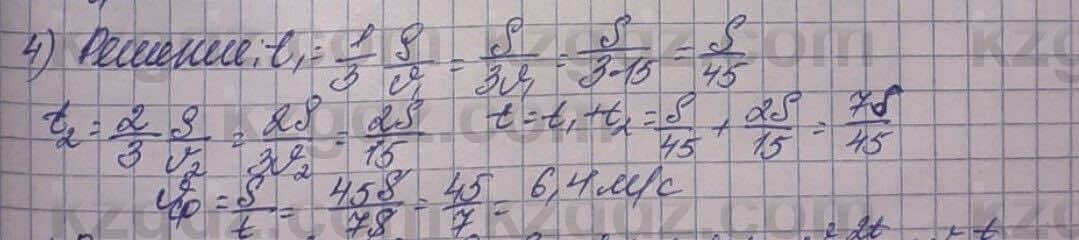 4) Решение: t₁ = 1/3 S/v₁ = S/3v₁ = S/3·15 = S/45
t₂ = 2/3 S/v₂ = 2S/3v₂ = 2S/15 t = t₁ + t₂ = S/45 + 2S/15 = 7S/45
vср = S/t = 45S/7S = 45/7 = 6,4 м/с